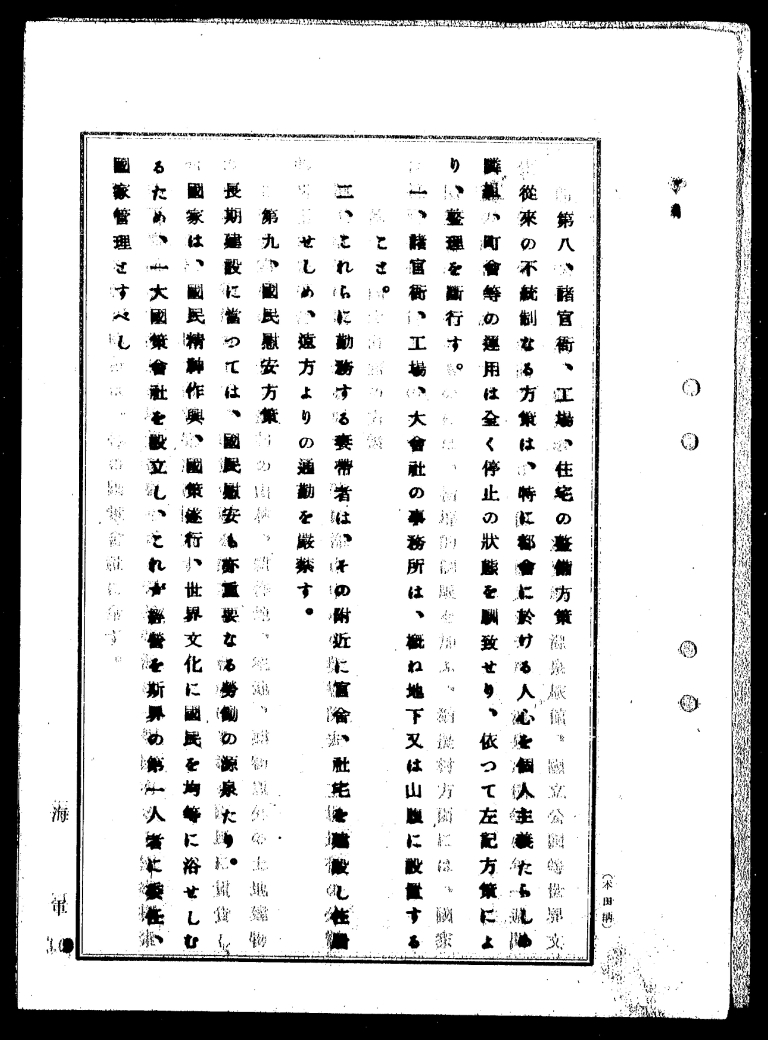 第八、諸官衙、工場、住宅の整備方策
從來の不統制なる方策は、特に都會に於ける人心を個人主義たらしめ
隣組、町會等の運用は全く停止の狀態を馴致せり、依つて左記方策によ
り、整理を斷行す。
一、諸官衙、工場、大會社の事務所は、概ね地下又は山腹に設置する
こと。
二、これらに勤務する妻帶者は、その附近に官舍、社宅を建設し住居
せしめ、遠方よりの通勤を嚴禁す。
第九、國民慰安方策
長期建設に當つては、國民慰安も亦重要なる勞働の源泉たり。
國家は、國民精神作興、國策遂行、世界文化に國民を均等に浴せしむ
るため、一大國策會社を設立し、これが經營を斯界の第一人者に委任、
國家管理とすべし
海軍